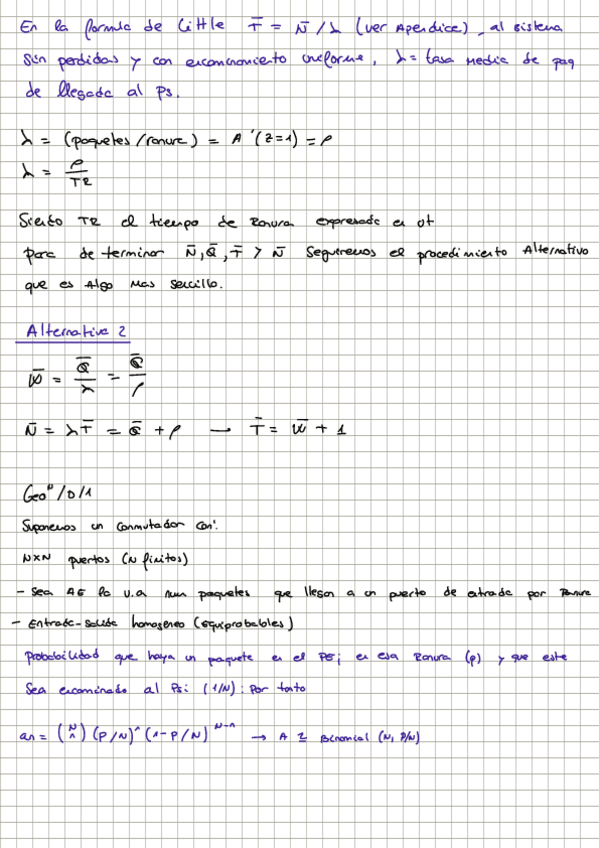 En la formula de Little T̄ = N̄ / λ (ver Apendice), al sistema
sin perdidas y con encaminamiento uniforme, λ = tasa media de paq
de llegada al Ps.
λ = (paquetes/ranura) = A'(z=1) = ρ
λ = ρ/TR
Siendo TR el tiempo de Ranura expresado en ut
Para determinar N̄, Q̄, T̄ y W̄ seguiremos el procedimiento Alternativo
que es Algo mas sencillo.
Alternativa 2
W̄ = Q̄/λ = Q̄/ρ
N̄ = λT̄ = Q̄ + ρ → T̄ = W̄ + 1
Geoⁿ/D/1
Suponemos un conmutador con:
N×N puertos (N finitos)
- Sea AE la v.a num paquetes que llegan a un puerto de entrada por Ranura
- Entrada-salida homogeneo (equiprobables)
Probabilidad que haya un paquete en el PEi en esa Ranura (p) y que este
Sea encaminado al Psi (1/N): Por tanto
an = (N n) (P/N)^n (1-P/N)^N-n → A ≅ Binomial (N, P/N)